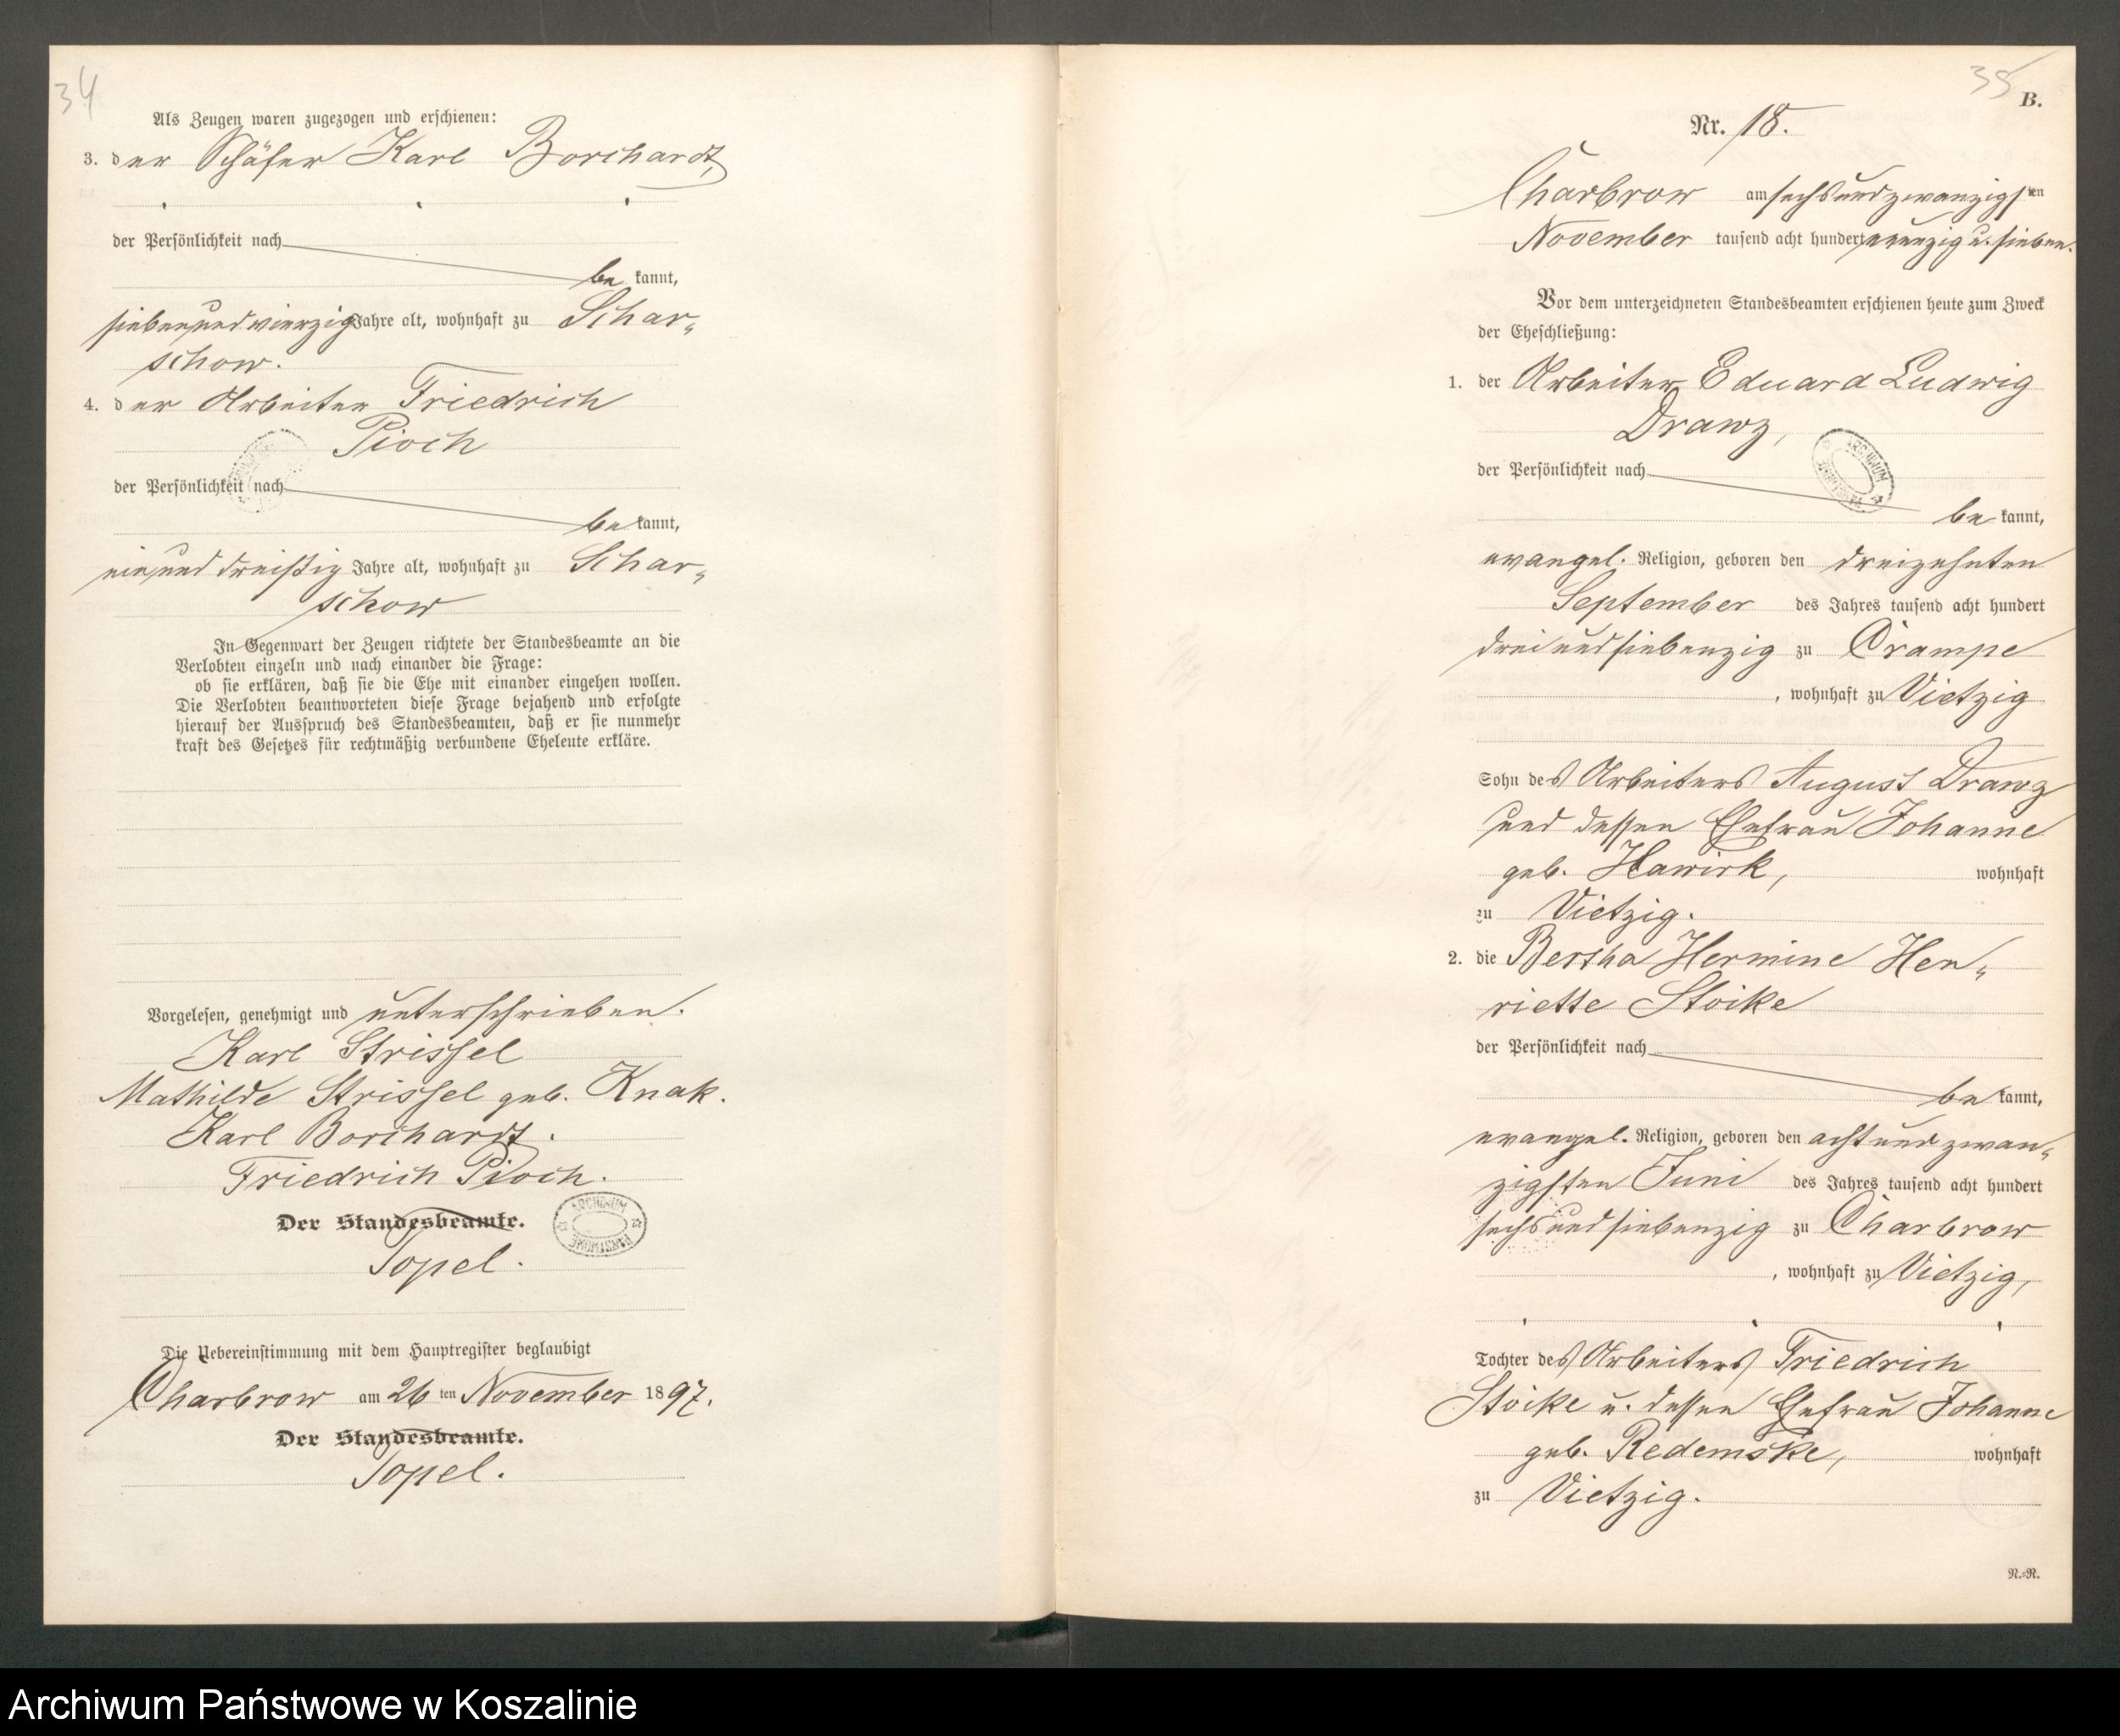 34
Als Zeugen waren zugezogen und erschienen:
3. der Schäfer Karl Borchardt,
der Persönlichkeit nach
be kannt,
siebenundvierzig Jahre alt, wohnhaft zu Schar-
schow.
4. der Arbeiter Friedrich
Pioch
der Persönlichkeit nach
be kannt,
einunddreißig Jahre alt, wohnhaft zu Schar-
schow
In Gegenwart der Zeugen richtete der Standesbeamte an die
Verlobten einzeln und nach einander die Frage:
ob sie erklären, daß sie die Ehe mit einander eingehen wollen.
Die Verlobten beantworteten diese Frage bejahend und erfolgte
hierauf der Ausspruch des Standesbeamten, daß er sie nunmehr
kraft des Gesetzes für rechtmäßig verbundene Eheleute erkläre.
Vorgelesen, genehmigt und unterschrieben.
Karl Strissel
Mathilde Strissel geb. Knak.
Karl Borchardt.
Friedrich Pioch.
Der Standesbeamte.
Topel.
ARCHIWUM PAŃSTWOWE
Die Uebereinstimmung mit dem Hauptregister beglaubigt
Charbrow am 26 ten November 1897.
Der Standesbeamte.
Topel.
35
B.
Nr. 18.
Charbrow am sechsundzwanzigsten
November tausend acht hundert neunzig u. sieben.
Vor dem unterzeichneten Standesbeamten erschienen heute zum Zweck
der Eheschließung:
1. der Arbeiter Eduard Ludwig
Drawz,
der Persönlichkeit nach
ARCHIWUM PAŃSTWOWE
be kannt,
evangel. Religion, geboren den dreizehnten
September des Jahres tausend acht hundert
dreiundsiebenzig zu Crampe
, wohnhaft zu Vietzig
Sohn des Arbeiters August Drawz
und dessen Ehefrau Johanne
geb. Hawirk, wohnhaft
zu Vietzig.
2. die Bertha Hermine Hen-
riette Stoike
der Persönlichkeit nach
be kannt,
evangel. Religion, geboren den achtundzwan-
zigsten Juni des Jahres tausend acht hundert
sechsundsiebenzig zu Charbrow
, wohnhaft zu Vietzig,
Tochter des Arbeiters Friedrich
Stoike u. dessen Ehefrau Johanne
geb. Redemske, wohnhaft
zu Vietzig.
N.=N.
Archiwum Państwowe w Koszalinie